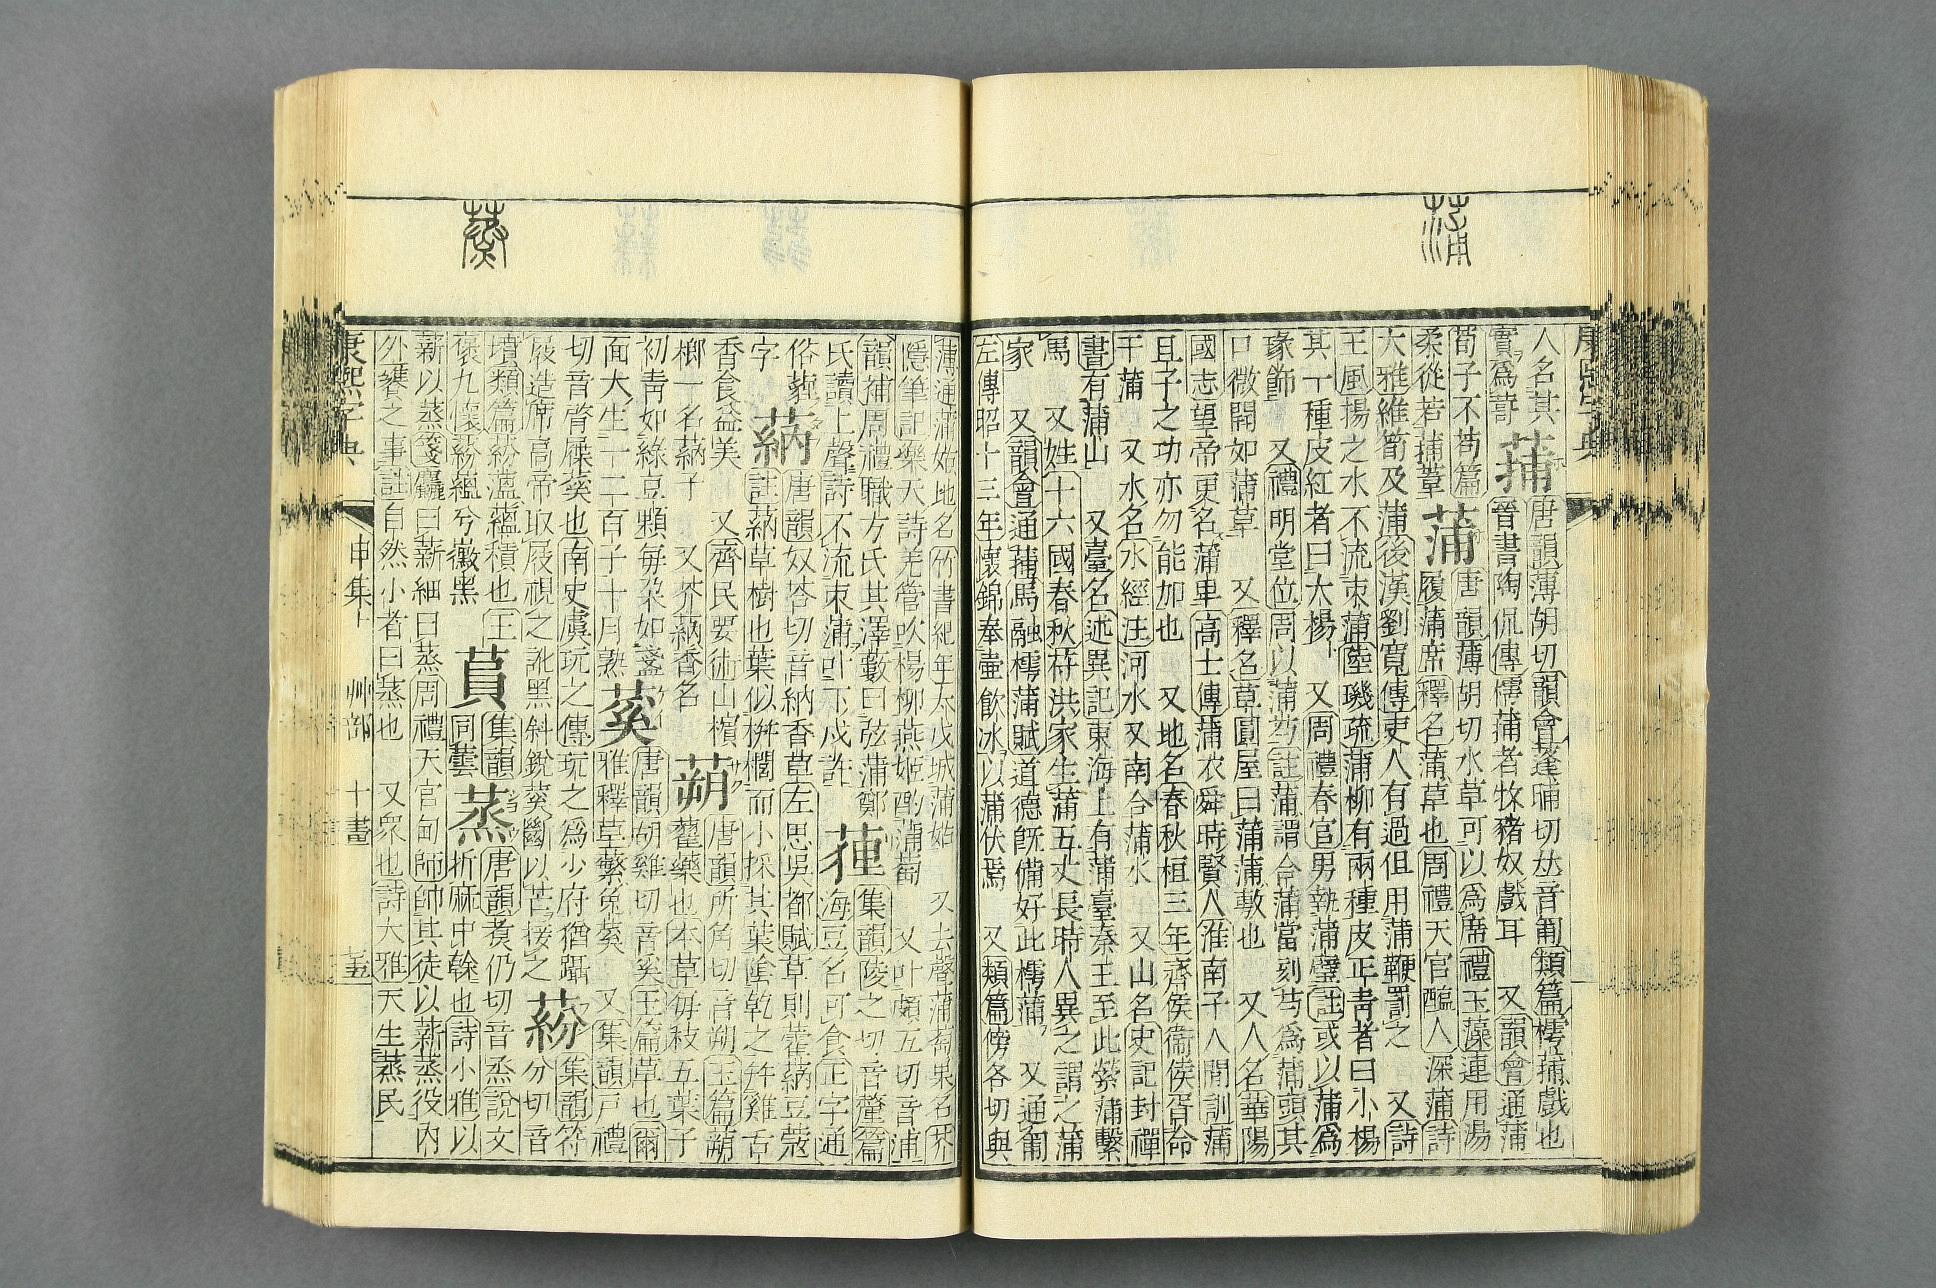 蒲
康熙字典
人名其
實爲蒟 蒱 唐韻薄胡切韻會蓬逋切𠀤音匍類篇樗蒱戲也
晉書陶侃傳樗蒲者牧豬奴戲耳 又韻會通蒲
荀子不苟篇 蒲 唐韻薄胡切水草可以爲席禮玉藻連用湯
柔從若蒲葦 履蒲席釋名蒲草也周禮天官醢人深蒲詩
大雅維筍及蒲後漢劉寬傳吏人有過但用蒲鞭罰之 又詩
王風揚之水不流束蒲陸璣疏蒲柳有兩種皮正靑者曰小楊
其一種皮紅者曰大楊 又周禮春官男執蒲璧註或以蒲爲
瑑飾 又禮明堂位周以蒲勺註蒲謂合蒲當刻勺爲蒲頭其
口微開如蒲草 又釋名草圓屋曰蒲蒲敷也 又人名華陽
國志望帝更名蒲卑高士傳蒲衣舜時賢人淮南子人閒訓蒲
且子之功亦勿能加也 又地名春秋桓三年齊侯衞侯胥命
于蒲 又水名水經注河水又南合蒲水 又山名史記封禪
書有蒲山 又臺名述異記東海上有蒲臺秦王至此縈蒲繫
馬 又姓十六國春秋苻洪家生蒲五丈長時人異之謂之蒲
家 又韻會通蒱馬融樗蒲賦道德旣備好此樗蒲 又通匍
左傳昭十三年懷錦奉壷飮冰以蒲伏焉 又類篇傍各切與
薄通蒲姑地名竹書紀年太戊城蒲姑 又去聲蒲萄果名芥
隱筆記樂天詩羌管吹楊柳燕姬酌蒲萄 又叶頗五切音浦
韻補周禮職方氏其澤藪曰弦蒲鄭
氏讀上聲詩不流束蒲叶下戍許 𦵧 集韻陵之切音釐篇
海豆名可食正字通
俗蘱
字 蒳 唐韻奴荅切音納香草左思吳都賦草則藿蒳豆蔻
註蒳草樹也葉似栟櫚而小採其葉陰乾之幷雞舌
香食益美 又齊民要術山檳
榔一名蒳子 又芥蒳香名 蒴 唐韻所角切音朔玉篇蒴
藋藥也本草每枝五葉子
初靑如綠豆顆每朶如盞
面大生一二百子十月熟 蒵 唐韻胡雞切音奚玉篇草也爾
雅釋草蘩菟蒵 又集韻戸禮
切音徯屧蒵也南史虞玩之傳玩之爲少府猶躡
屐造席高帝取屐視之訛黑斜銳蒵斷以芒接之 蒶 集韻符
分切音
墳類篇蒶蒀蘊積也王
褒九懷蒶蒕兮黴黧 蒷 集韻
同藖 蒸 唐韻煑仍切音烝說文
折麻中榦也詩小雅以
薪以蒸箋麤曰薪細曰蒸周禮天官甸師帥其徒以薪蒸役內
外饔之事註自然小者曰蒸也 又衆也詩大雅天生蒸民
康熙字典 申集上 艸部 十畫
蒸